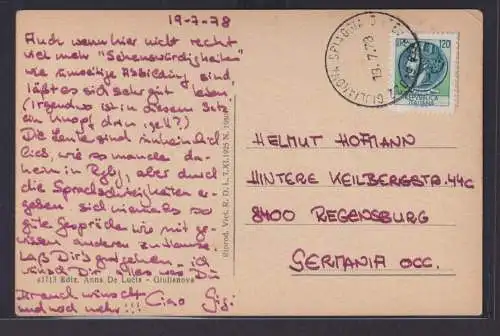 19-7-78
Auch wenn hier nicht recht
viel mehr "Sehenswürdigkeiten"
wie umseitige Abbildung sind,
läßt es sich sehr gut leben.
(Irgendwo ist in diesem Satz
ein Knopf drin, gell?)
Die Leute sind
lich, wie so manche da-
heim in Rgbg, aber durch
die Sprachschwierigkeiten er-
geben sich niemals so
gute Gespräche wie mit ge-
wissen anderen zuhause.
Laß Dir's gutgehen - ich
wünsch Dir alles was Du
Dir auch wünscht
und noch mehr!!! Ciao Gigi
Riprod. Viet. R. D. L. 7.XI.1925 N.
41713 Ediz. Anna De Lucia - Giulianova
GIULIANOVA SPIAGGIA
19.7.78
LIRE 120
REPUBBLICA
ITALIANA
HELMUT HOFMANN
HINTERE KEILBERGSTR. 44c
8400 REGENSBURG
GERMANIA OCC.